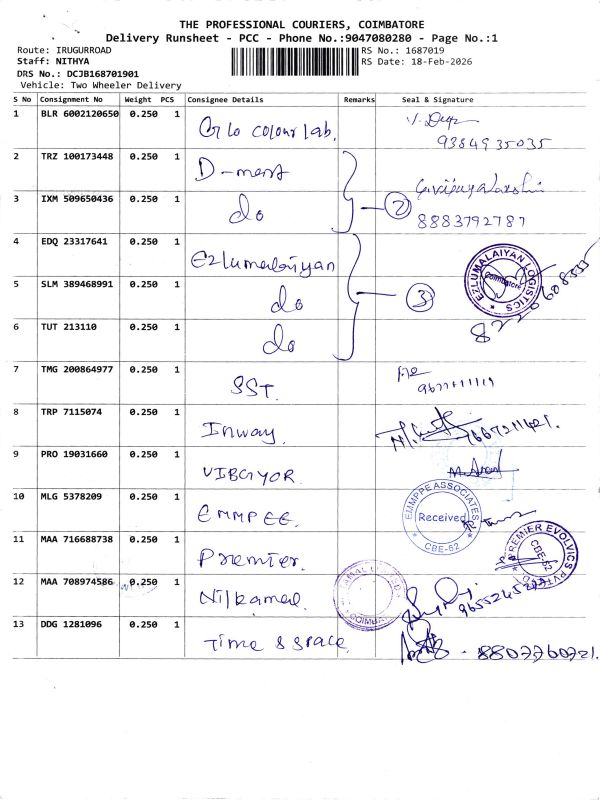 THE PROFESSIONAL COURIERS, COIMBATORE
Delivery Runsheet - PCC - Phone No.:9047080280 - Page No.:1
Route: IRUGURROAD
RS No.: 1687019
Staff: NITHYA
RS Date: 18-Feb-2026
DRS No.: DCJB168701901
Vehicle: Two Wheeler Delivery
S No Consignment No Weight PCS Consignee Details Remarks Seal & Signature
1 BLR 6002120650 0.250 1 Glo colour lab.
9384935035
2 TRZ 100173448 0.250 1 D-mart
3 IXM 509650436 0.250 1 do 2
8883792787
4 EDQ 23317641 0.250 1 Ezlumalaiyan
EZLUMALAIYAN LOGISTICS
Coimbatore
5 SLM 389468991 0.250 1 do 3
6 TUT 213110 0.250 1 do
7 TMG 200864977 0.250 1 SST.
8 TRP 7115074 0.250 1 Inway.
9 PRO 19031660 0.250 1 VIBGYOR.
10 MLG 5378209 0.250 1 EMMPEE.
EMMPPE ASSOCIATES
Received
CBE-62
11 MAA 716688738 0.250 1 Premier.
PREMIER EVOLVICS PVT
CBE-62
12 MAA 708974586 0.250 1 Nilkamal.
13 DDG 1281096 0.250 1 Time & space
8807760721.